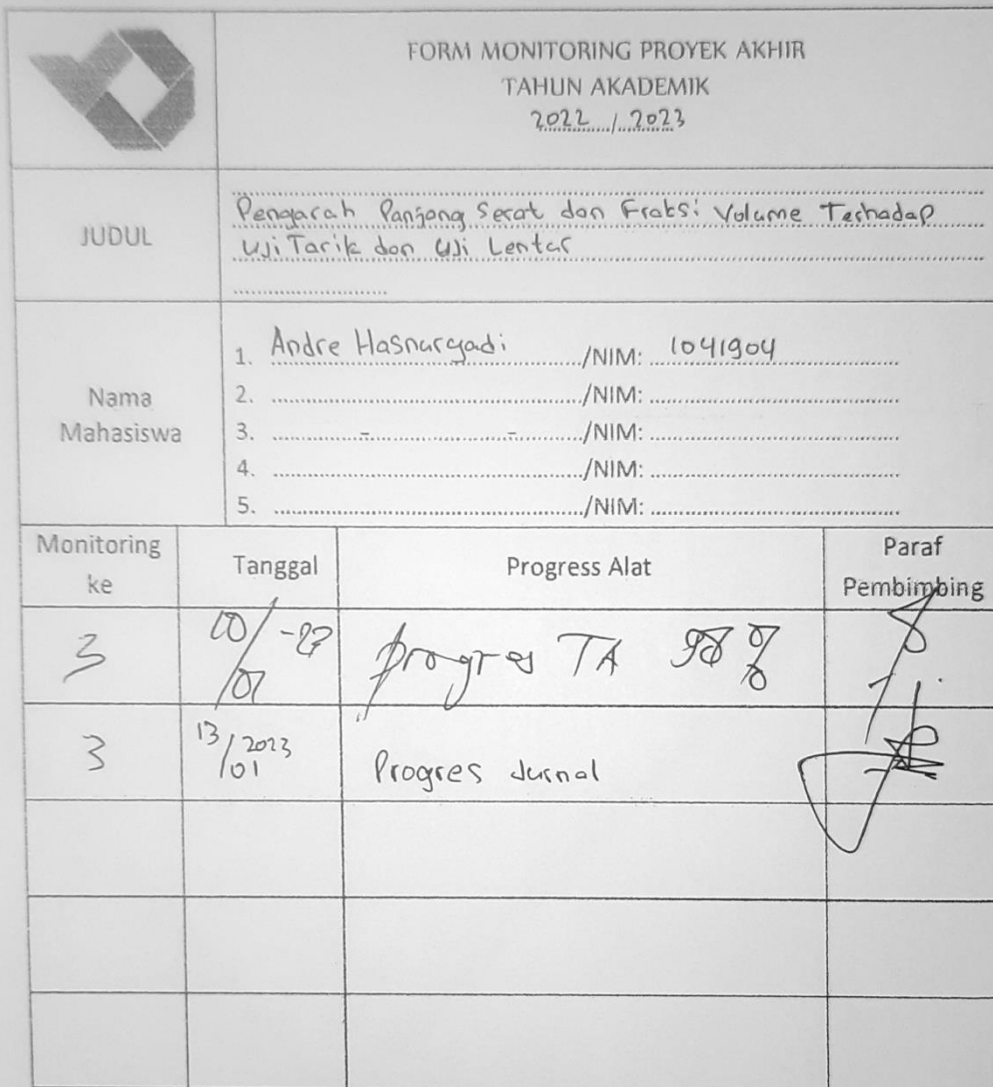 FORM MONITORING PROYEK AKHIR
TAHUN AKADEMIK
2022 / 2023
JUDUL
Pengaruh Panjang Serat dan Fraksi Volume Terhadap
Uji Tarik dan Uji Lentur
Nama
Mahasiswa
1. Andre Hasnuryadi /NIM: 1041904
2. /NIM:
3. - - /NIM:
4. /NIM:
5. /NIM:
Monitoring
ke
Tanggal
Progress Alat
Paraf
Pembimbing
3
progres TA
3
13/01 2023
Progres Jurnal